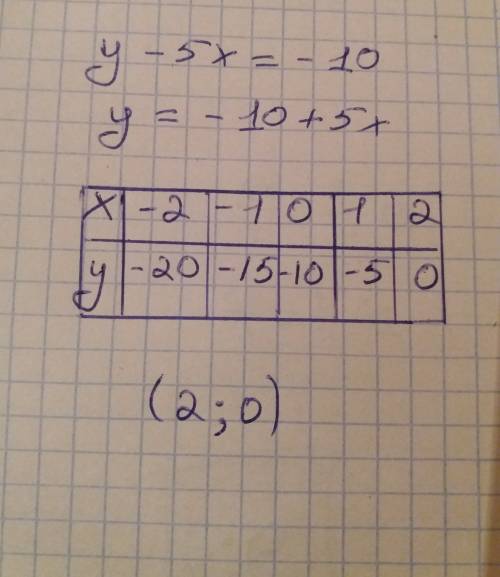 y - 5x = - 10
y = - 10 + 5x
x -2 -1 0 1 2
y -20 -15 -10 -5 0
(2; 0)